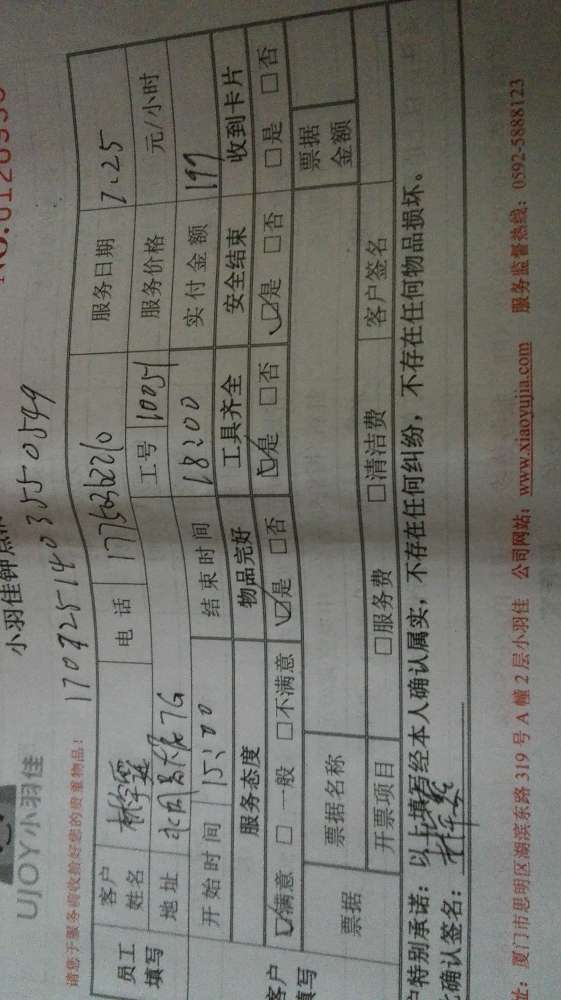 UJOY小羽佳
小羽佳钟点
请您于服务前收拾好您的贵重物品!
员工填写 客户姓名 电话 服务日期 7.25
地址 7G 工号 10051 服务价格 元/小时
开始时间 15:00 结束时间 18:00 实付金额 197
服务态度 物品完好 工具齐全 安全结束 收到卡片
☑满意 □一般 □不满意 ☑是 □否 ☑是 □否 ☑是 □否 □是 □否
客户填写
票据 票据名称 票据金额
开票项目 □服务费 □清洁费 客户签名
户特别承诺:以上填写经本人确认属实,不存在任何纠纷,不存在任何物品损坏。
确认签名:
址:厦门市思明区湖滨东路 319 号 A 幢 2 层小羽佳 公司网站:www.xiaoyujia.com 服务监督热线:0592-5888123